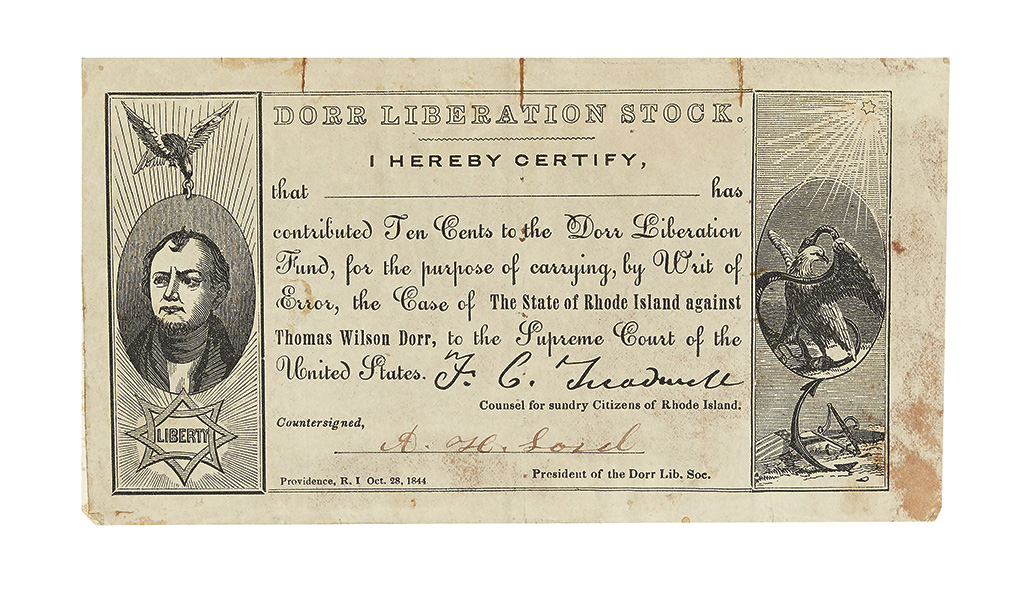 DORR LIBERATION STOCK.
I HEREBY CERTIFY,
that ______ has
contributed Ten Cents to the Dorr Liberation
Fund, for the purpose of carrying, by Writ of
Error, the Case of The State of Rhode Island against
Thomas Wilson Dorr, to the Supreme Court of the
United States. F. C. Treadwell
Counsel for sundry Citizens of Rhode Island.
Countersigned,
A. H. Lord
President of the Dorr Lib. Soc.
Providence, R. I Oct. 28, 1844
LIBERTY